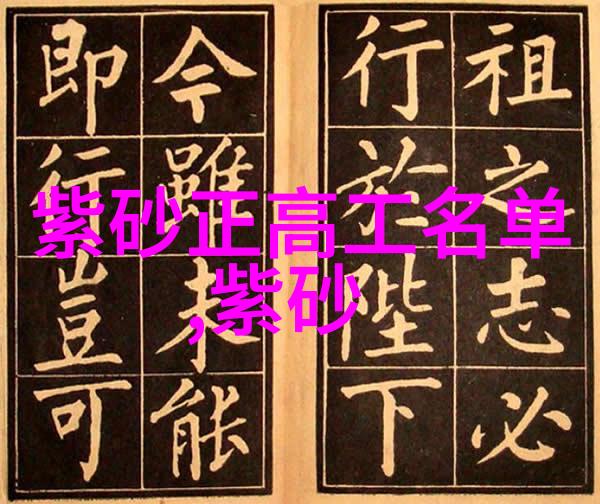 祖之志必
行於陛下
今雖未能
即行豈可
紫砂正高工名单
,紫砂